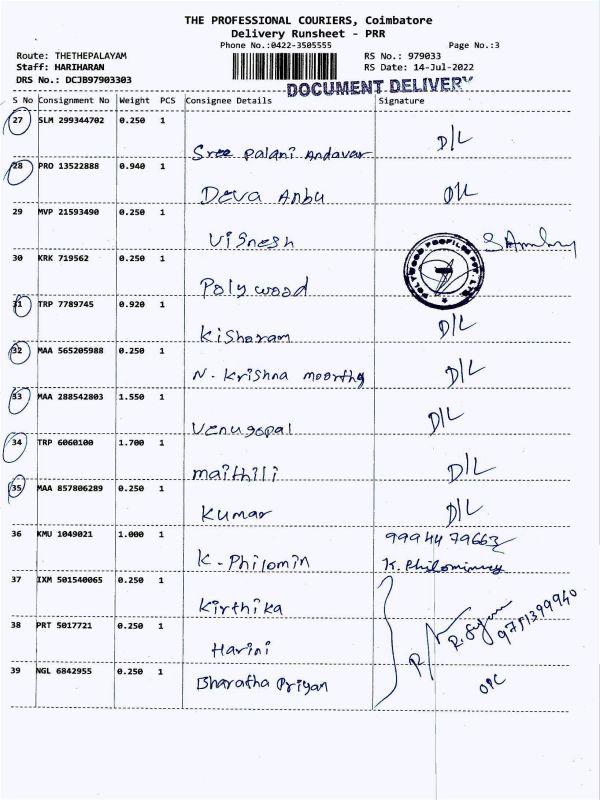 THE PROFESSIONAL COURIERS, Coimbatore
Delivery Runsheet - PRR
Phone No.:0422-3505555 Page No.:3
Route: THETHEPALAYAM RS No.: 979033
Staff: HARIHARAN RS Date: 14-Jul-2022
DRS No.: DCJB97903303
DOCUMENT DELIVERY
S No Consignment No Weight PCS Consignee Details Signature
27 SLM 299344702 0.250 1
Sree Palani Andavar D/L
28 PRO 13522888 0.940 1
Deva Anbu D/L
29 MVP 21593490 0.250 1
Vignesh
30 KRK 719562 0.250 1
Polywood
POLYWOOD PROFILES PVT. LTD.
31 TRP 7789745 0.920 1
Kishoram D/L
32 MAA 565205988 0.250 1
N. Krishna moorthy D/L
33 MAA 288542803 1.550 1
Venugopal D/L
34 TRP 6060100 1.700 1
maithili D/L
35 MAA 857806289 0.250 1
Kumar D/L
36 KMU 1049021 1.000 1 9994479663
K. Philomin K. Philominary
37 IXM 501540065 0.250 1
Kirthika
38 PRT 5017721 0.250 1 9751399940
Harini
39 NGL 6842955 0.250 1
Bharatha Priyan